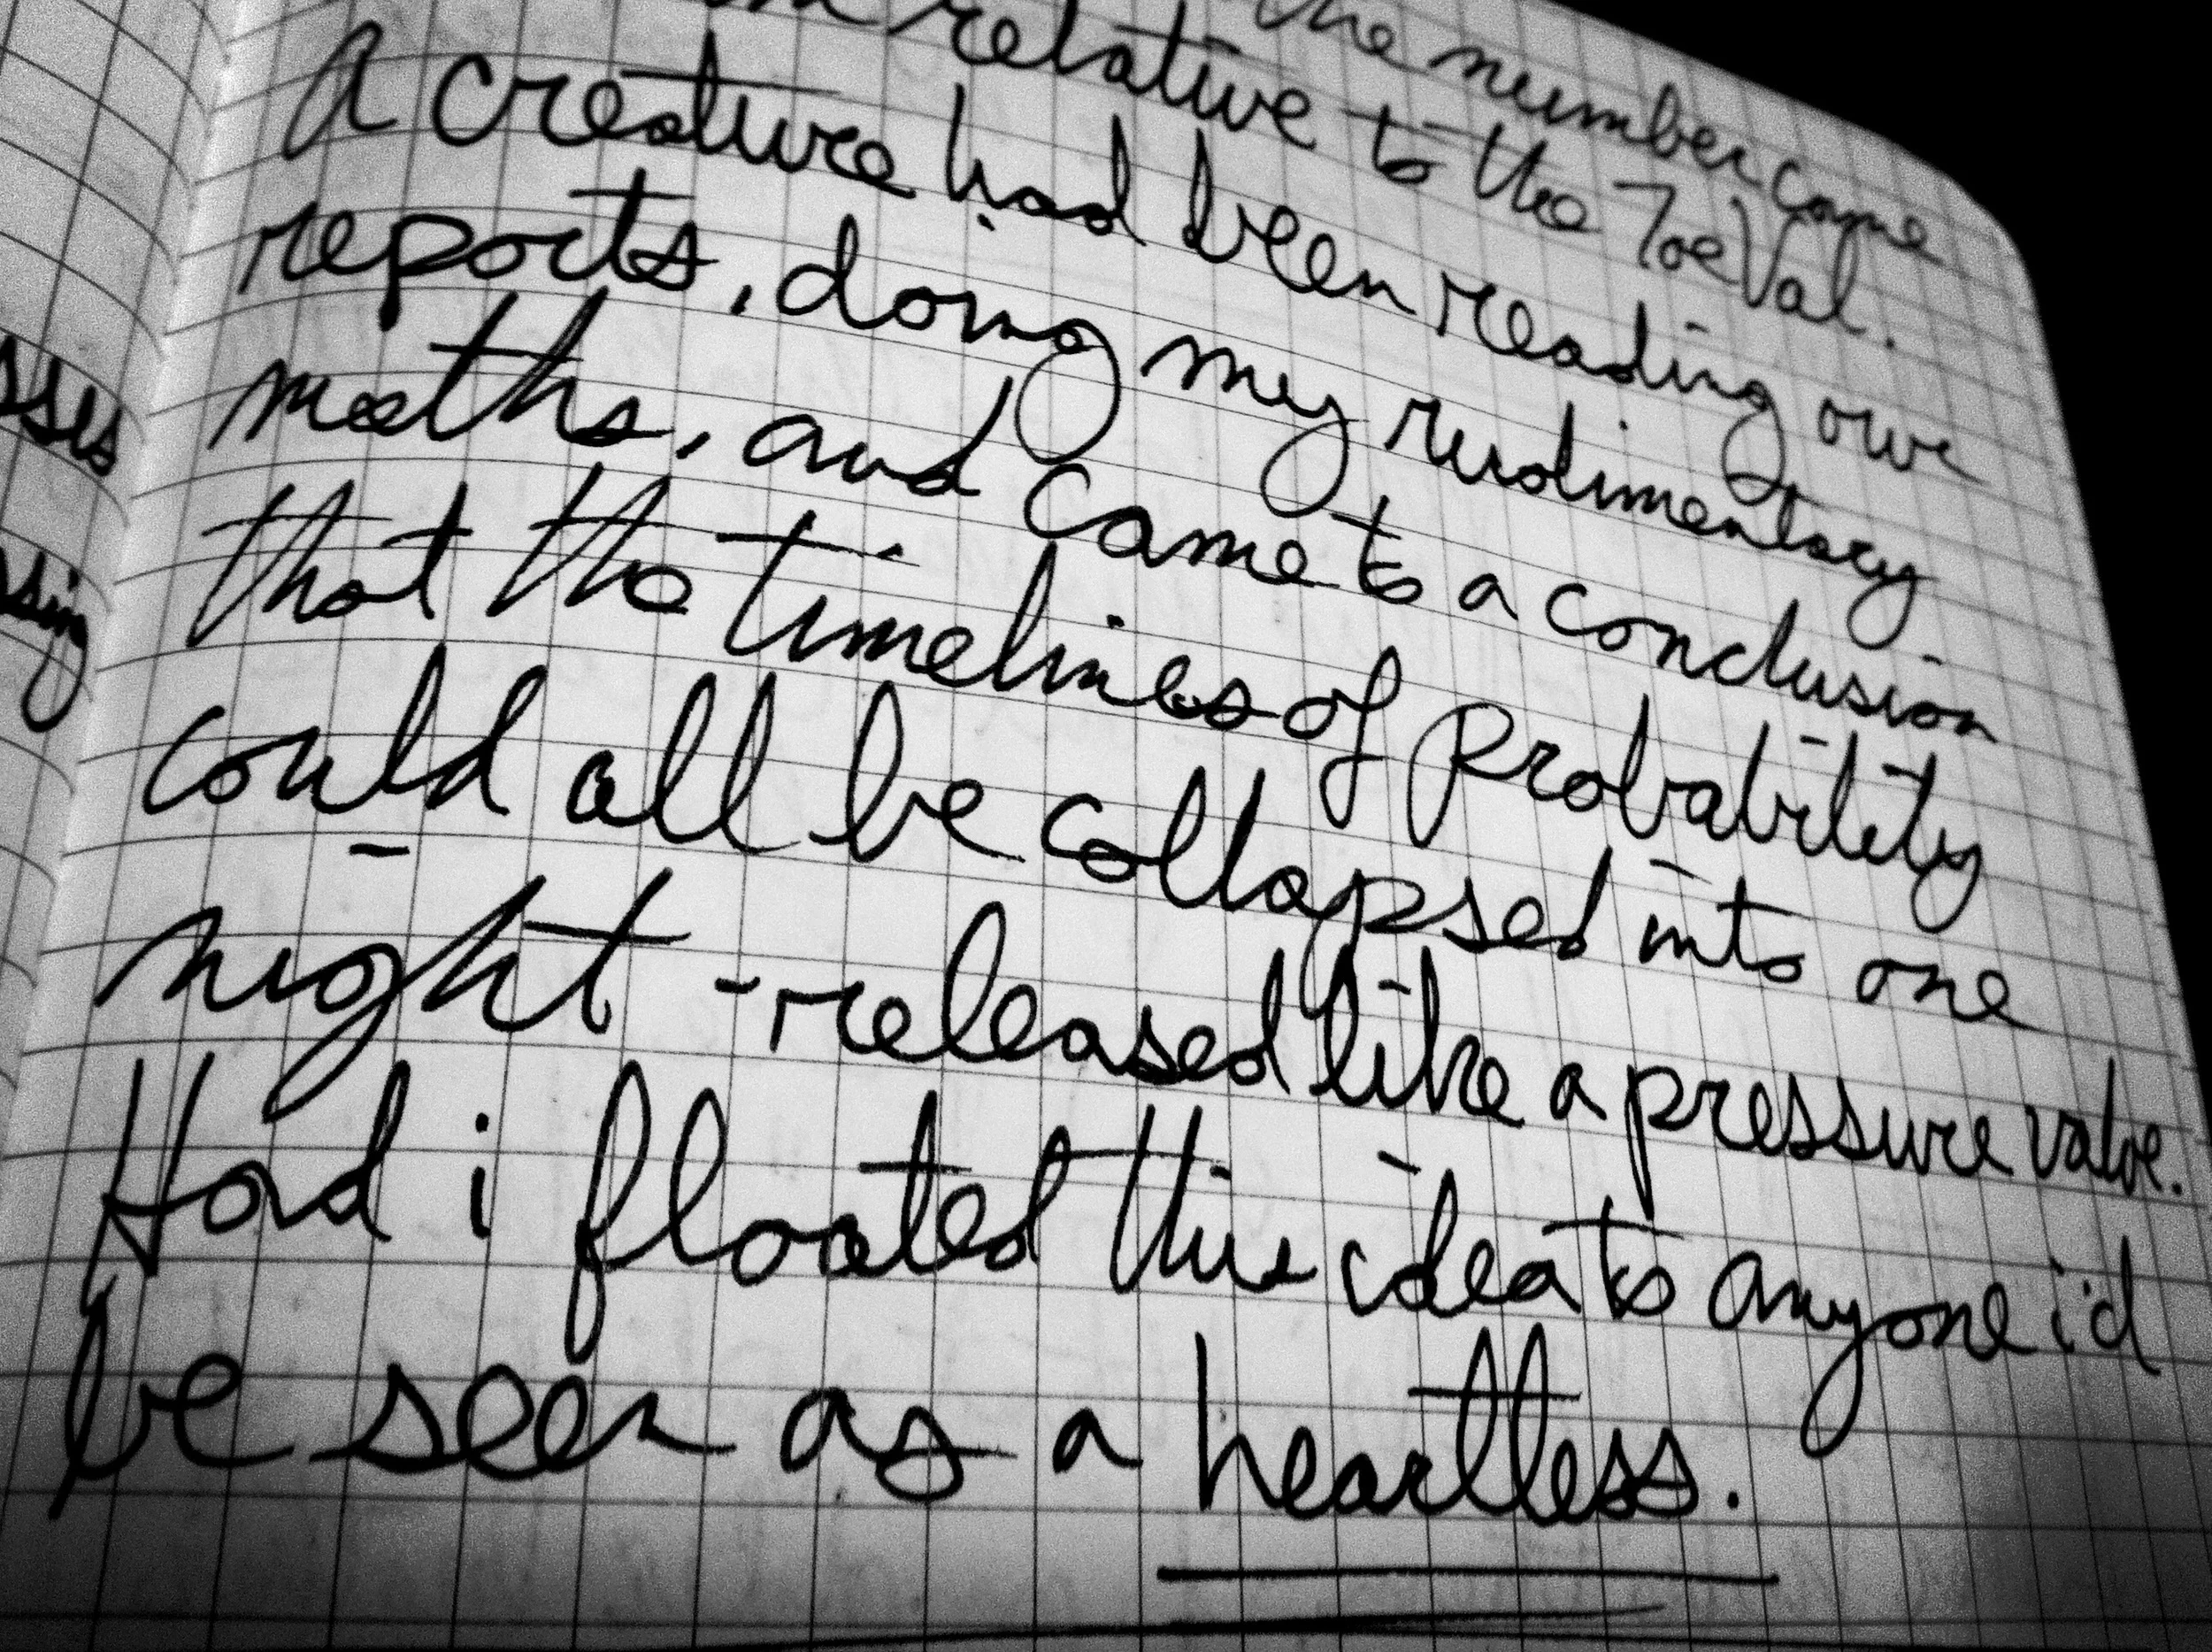 the number came
relative to the ToeVal.
A creature had been reading our
reports, doing my rudimentary
maths, and came to a conclusion
that the timelines of probability
could all be collapsed into one
night - released like a pressure valve.
Had i floated this idea to anyone i'd
be seen as a heartless.
sses
sing